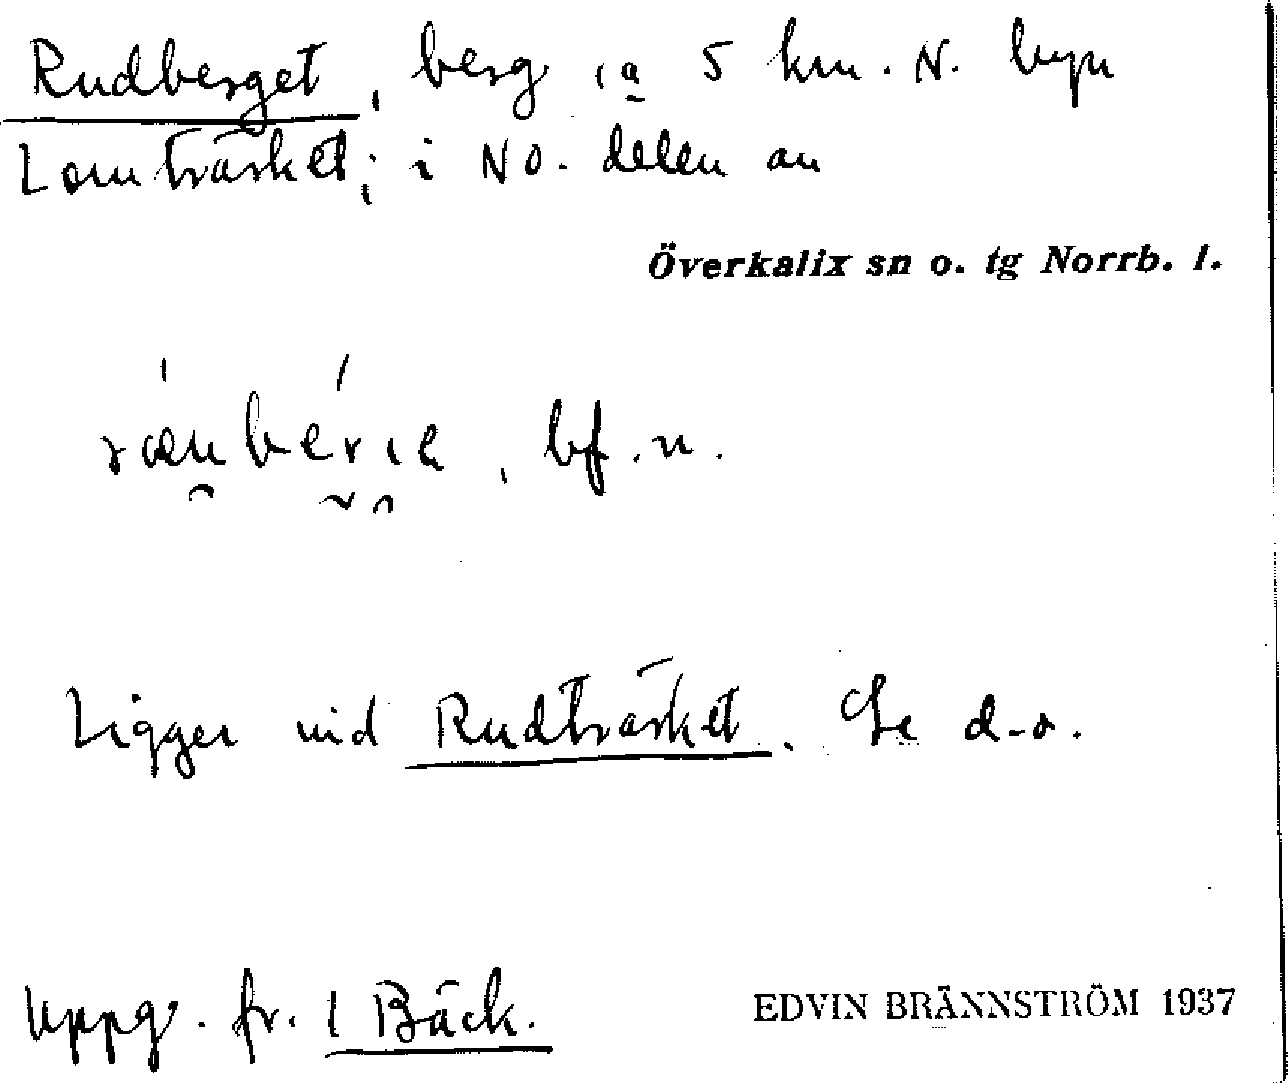 Rudberget, berg ca 5 km. N. byn
Lomträsket; i NO. delen av
Överkalix sn o. tg Norrb. l.
bf. n.
Ligger vid Rudträsket. Se d.o.
Uppg. fr. 1 Bäck.
EDVIN BRÄNNSTRÖM 1937